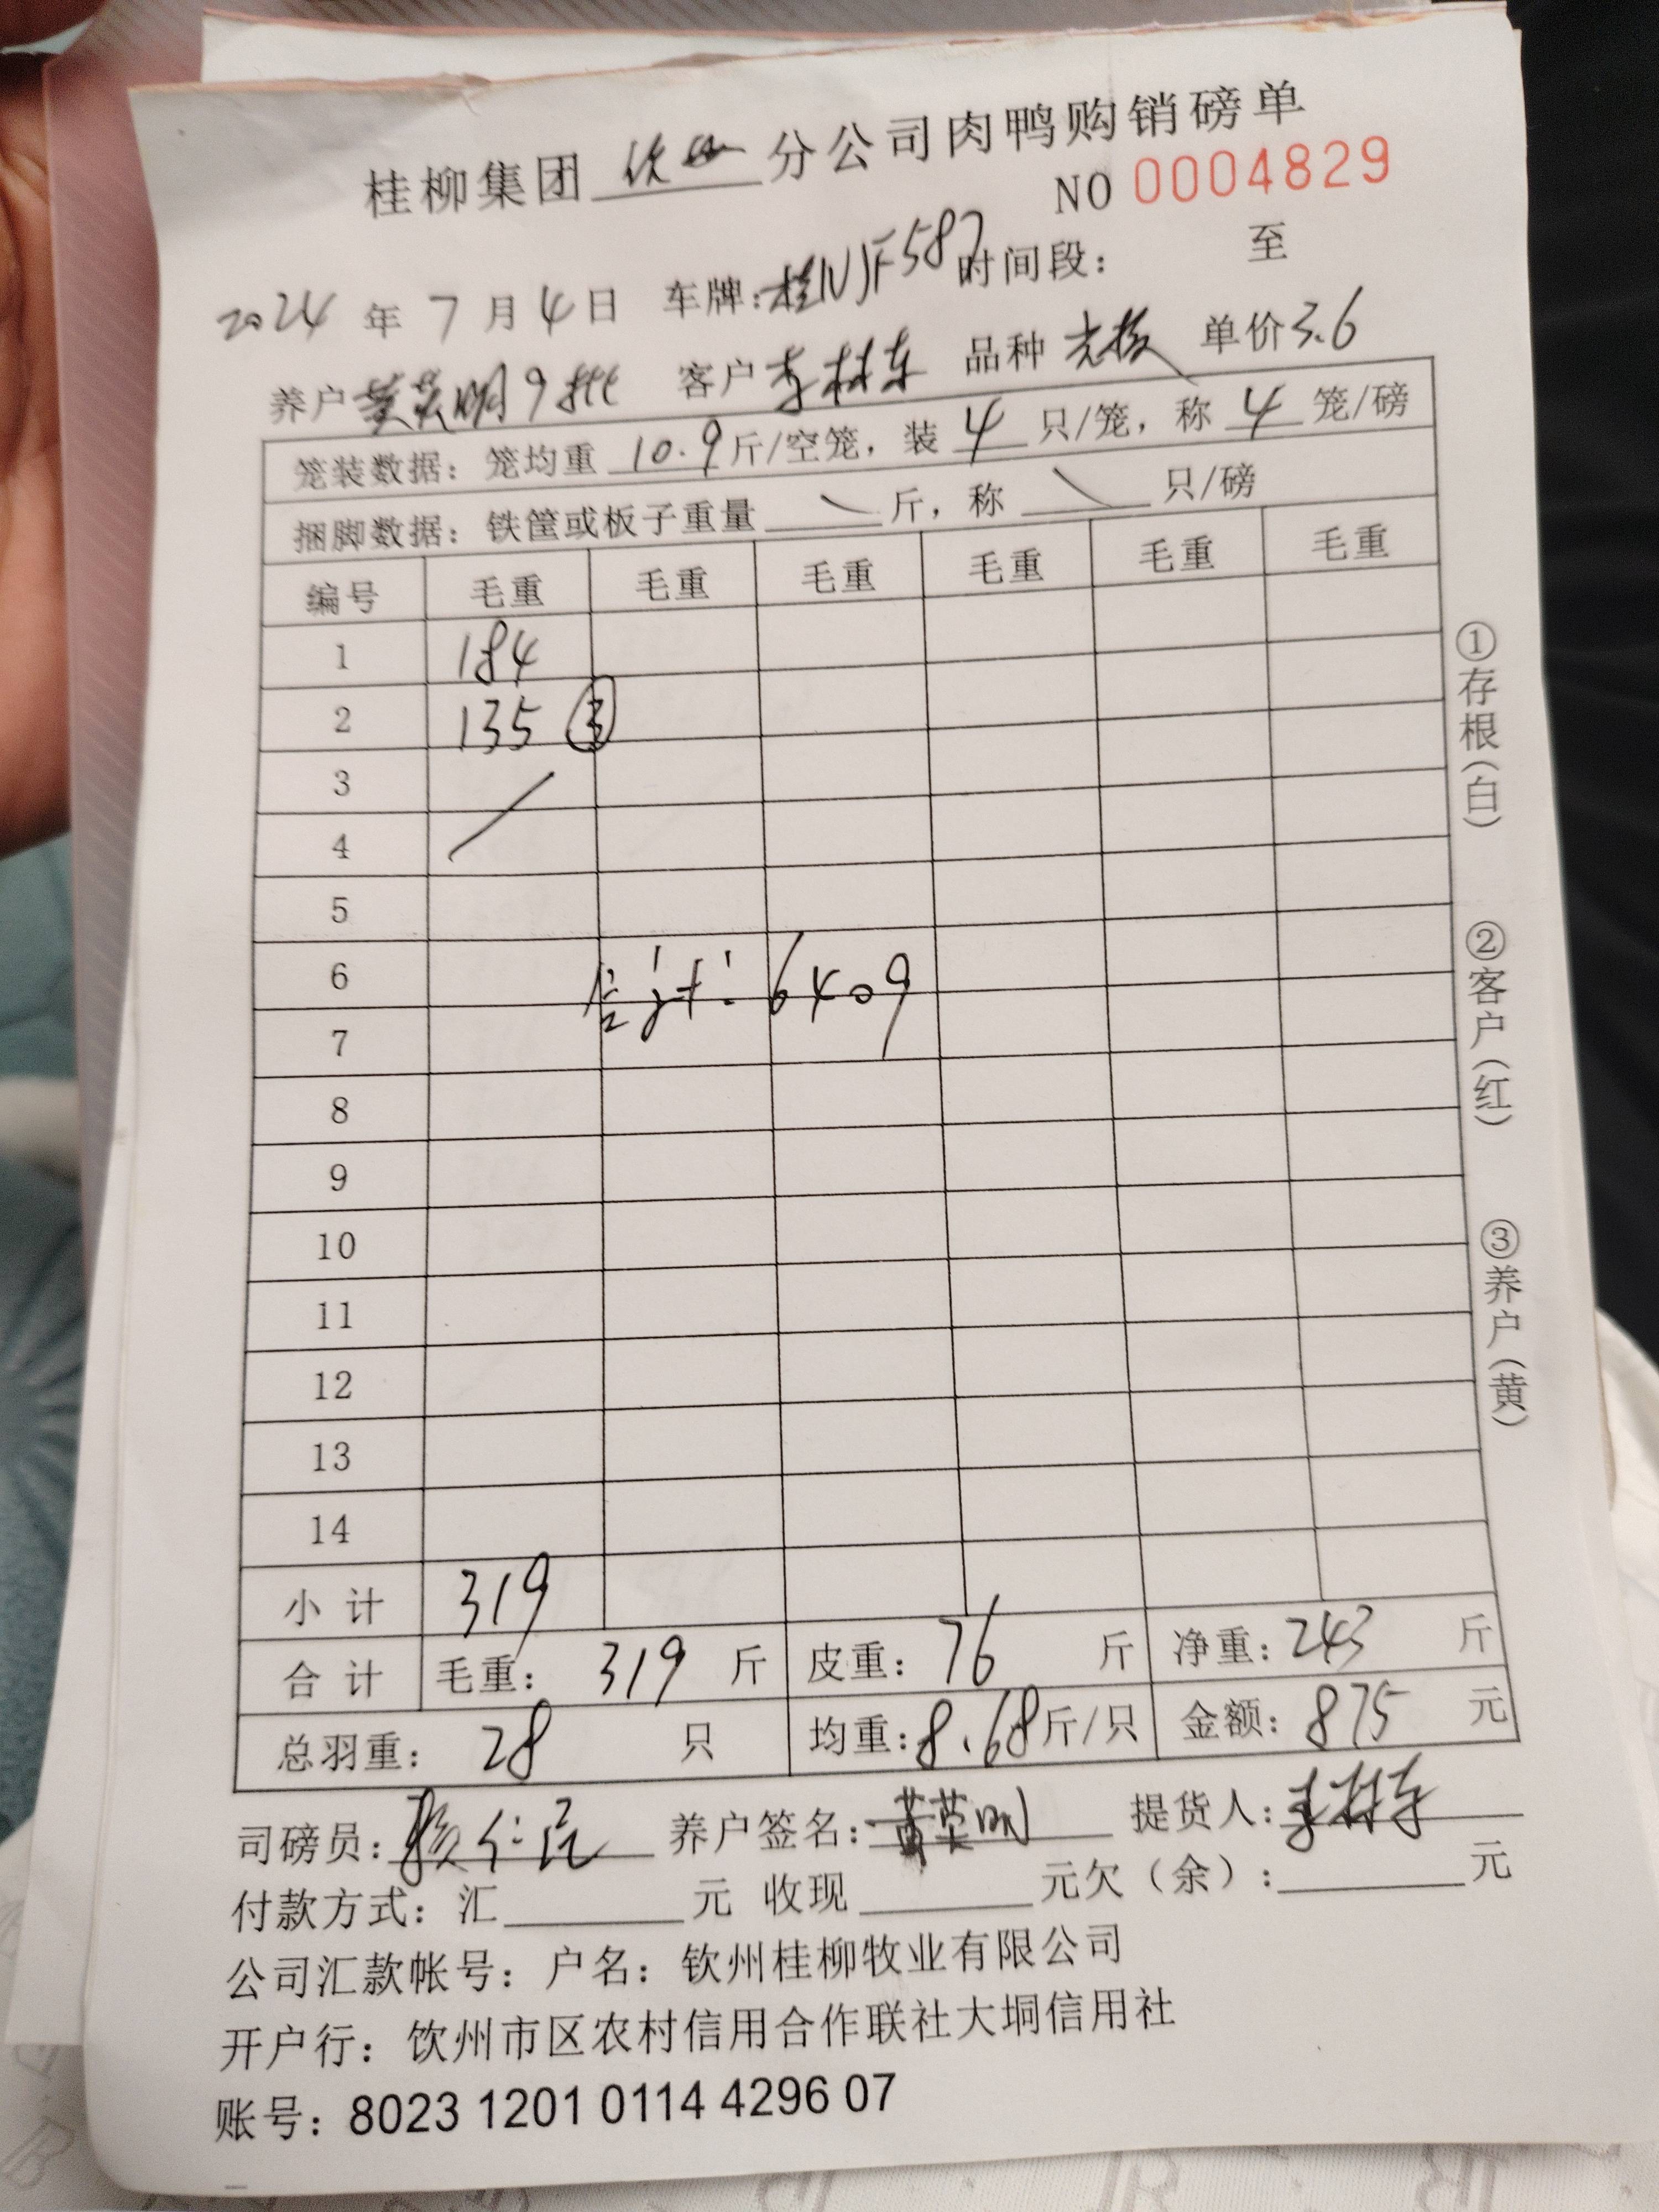 桂柳集团 分公司肉鸭购销磅单
NO 0004829
2024 年 7 月 4 日 车牌：桂NJF587 时间段： 至
养户 黄英明9批 客户 李林东 品种 单价3.6
笼装数据：笼均重 10.9 斤/空笼，装 4 只/笼，称 4 笼/磅
捆脚数据：铁筐或板子重量 斤，称 只/磅
编号 毛重 毛重 毛重 毛重 毛重 毛重
1 184
2 135 ③
3
4
5
6 合计：6409
7
8
9
10
11
12
13
14
小计 319
合计 毛重：319 斤 皮重：76 斤 净重：243 斤
总羽重：28 只 均重：8.68斤/只 金额：875 元
司磅员： 养户签名：黄英明 提货人：李林东
付款方式：汇 元 收现 元欠（余）： 元
公司汇款帐号：户名：钦州桂柳牧业有限公司
开户行：钦州市区农村信用合作联社大垌信用社
账号：8023 1201 0114 4296 07
①存根（白）
②客户（红）
③养户（黄）